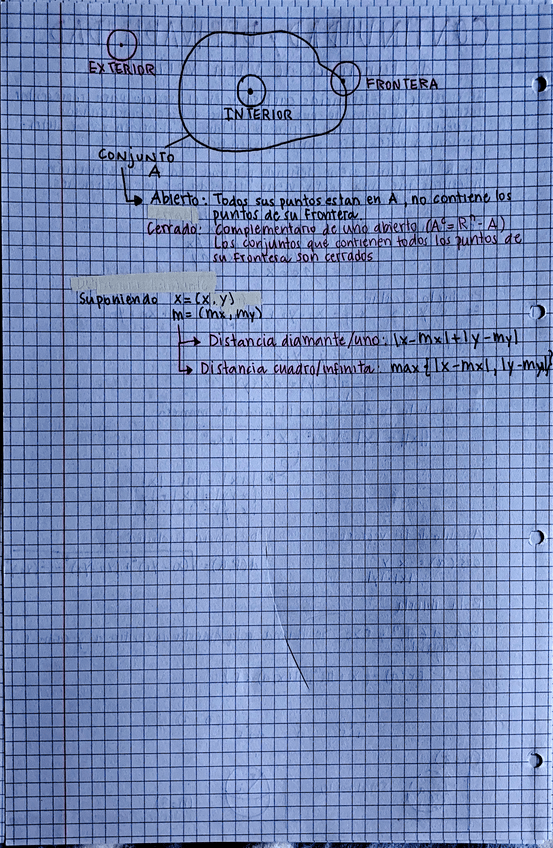 EXTERIOR
FRONTERA
INTERIOR
CONJUNTO
A
Abierto: Todos sus puntos estan en A, no contiene los
puntos de su frontera.
Cerrado: Complementario de uno abierto (Aᶜ = Rⁿ - A)
Los conjuntos que contienen todos los puntos de
su frontera son cerrados
Suponiendo x = (x, y)
m = (mx, my)
Distancia diamante/uno: |x-mx|+|y-my|
Distancia cuadro/infinita: max{|x-mx|, |y-my|}